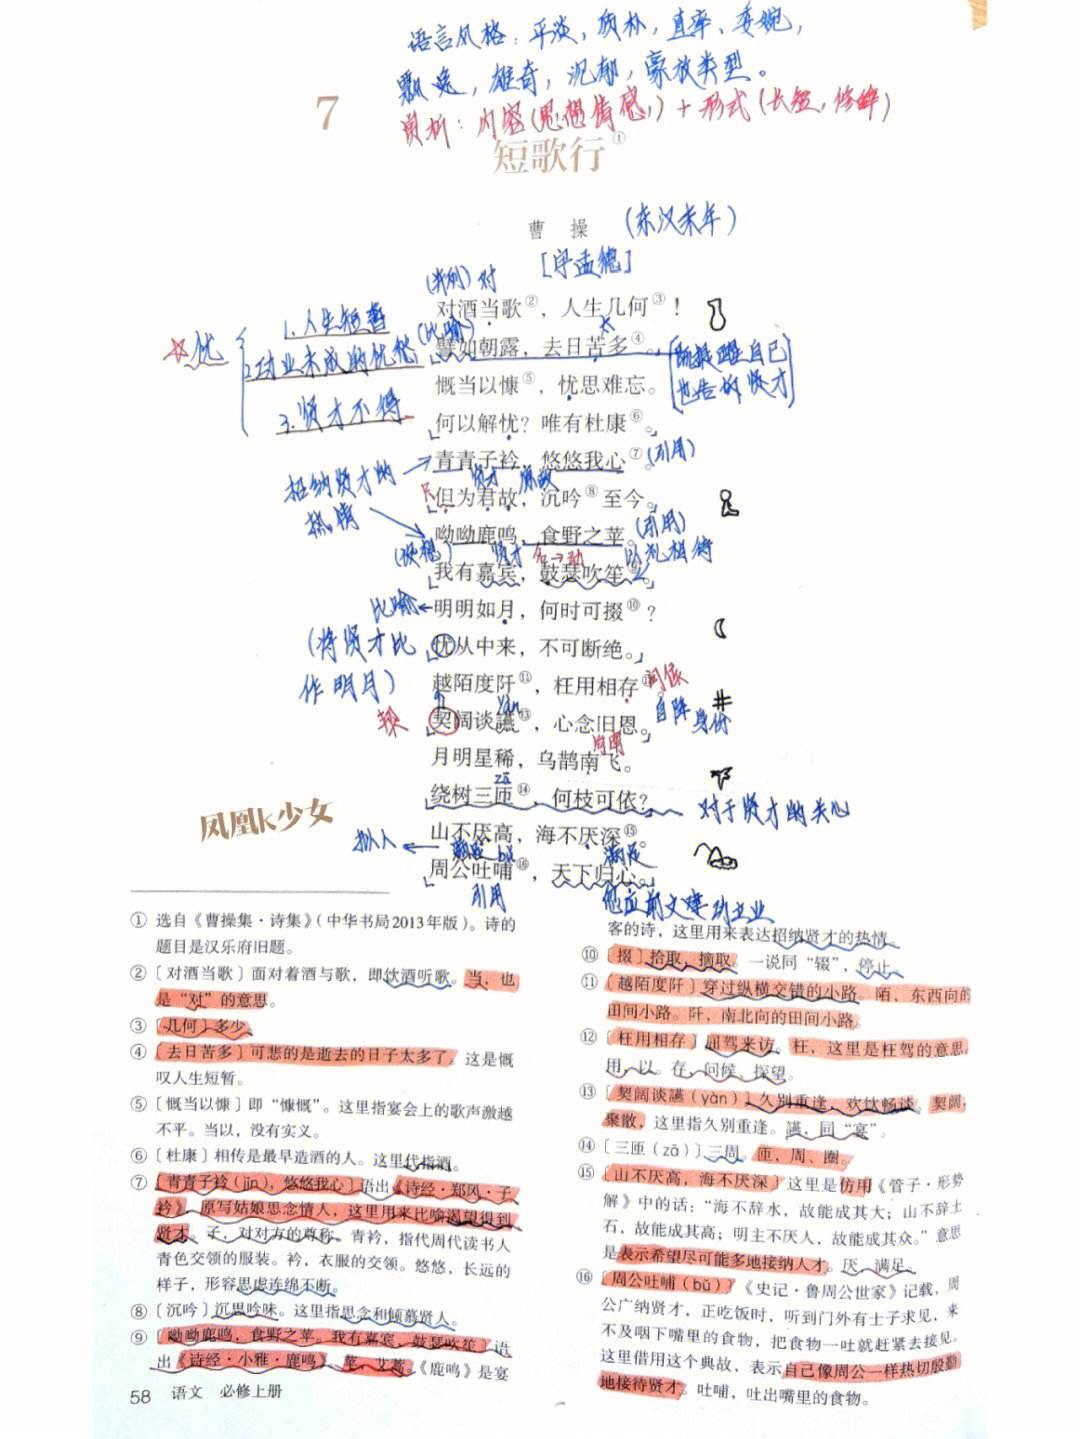 语言风格：平淡，质朴，直率，委婉，
飘逸，雄奇，沉郁，豪放类型。
赏析：内容(思想情感，)+形式(长短，修辞)
7
短歌行①
曹 操 (东汉末年)
[字孟德]
对
对酒当歌②，人生几何③！
1.人生短暂
(比喻)
☆忧
譬如朝露，去日苦多④。
2.功业未成的忧愁
既提醒自己
也告诉贤才
慨当以慷⑤，忧思难忘。
3.贤才不得
何以解忧？唯有杜康⑥。
青青子衿，悠悠我心⑦。(引用)
招纳贤才的
热情
贤才
只
但为君故，沉吟⑧至今。
呦呦鹿鸣，食野之苹。(引用)
贤才 名→动 以礼相待
我有嘉宾，鼓瑟吹笙⑨。
比喻←明明如月，何时可掇⑩？
(将贤才比
作明月)
忧从中来，不可断绝。
越陌度阡⑪，枉用相存⑫。
问候
自降身份
yàn
契阔谈䜩⑬，心念旧恩。
向南
月明星稀，乌鹊南飞。
zā
绕树三匝⑭，何枝可依？
对于贤才的关心
凤凰k少女
山不厌高，海不厌深⑮。
拟人
满足 bǔ 满足
周公吐哺⑯，天下归心。
引用
① 选自《曹操集·诗集》（中华书局2013年版）。诗的
题目是汉乐府旧题。
② 〔对酒当歌〕面对着酒与歌，即饮酒听歌。当，也
是“对”的意思。
③ 〔几何〕多少。
④ 〔去日苦多〕可悲的是逝去的日子太多了。这是慨
叹人生短暂。
⑤ 〔慨当以慷〕即“慷慨”。这里指宴会上的歌声激越
不平。当以，没有实义。
⑥ 〔杜康〕相传是最早造酒的人。这里代指酒。
⑦ 〔青青子衿（jīn），悠悠我心〕语出《诗经·郑风·子
衿》。原写姑娘思念情人，这里用来比喻渴望得到
贤才。子，对对方的尊称。青衿，指代周代读书人
青色交领的服装。衿，衣服的交领。悠悠，长远的
样子，形容思虑连绵不断。
⑧ 〔沉吟〕沉思吟味。这里指思念和倾慕贤人。
⑨ 〔呦呦鹿鸣，食野之苹。我有嘉宾，鼓瑟吹笙〕语
出《诗经·小雅·鹿鸣》。苹，艾蒿。《鹿鸣》是宴
客的诗，这里用来表达招纳贤才的热情。
⑩ 〔掇〕拾取，摘取。一说同“辍”，停止。
⑪ 〔越陌度阡〕穿过纵横交错的小路。陌，东西向的
田间小路。阡，南北向的田间小路。
⑫ 〔枉用相存〕屈驾来访。枉，这里是枉驾的意思。
用，以。存，问候、探望。
⑬ 〔契阔谈䜩（yàn）〕久别重逢，欢饮畅谈。契阔，
聚散，这里指久别重逢。䜩，同“宴”。
⑭ 〔三匝（zā）〕三周。匝，周、圈。
⑮ 〔山不厌高，海不厌深〕这里是仿用《管子·形势
解》中的话：“海不辞水，故能成其大；山不辞土
石，故能成其高；明主不厌人，故能成其众。”意思
是表示希望尽可能多地接纳人才。厌，满足。
⑯ 〔周公吐哺（bǔ）〕《史记·鲁周公世家》记载，周
公广纳贤才，正吃饭时，听到门外有士子求见，来
不及咽下嘴里的食物，把食物一吐就赶紧去接见。
这里借用这个典故，表示自己像周公一样热切殷勤
地接待贤才。吐哺，吐出嘴里的食物。
58 语文 必修上册